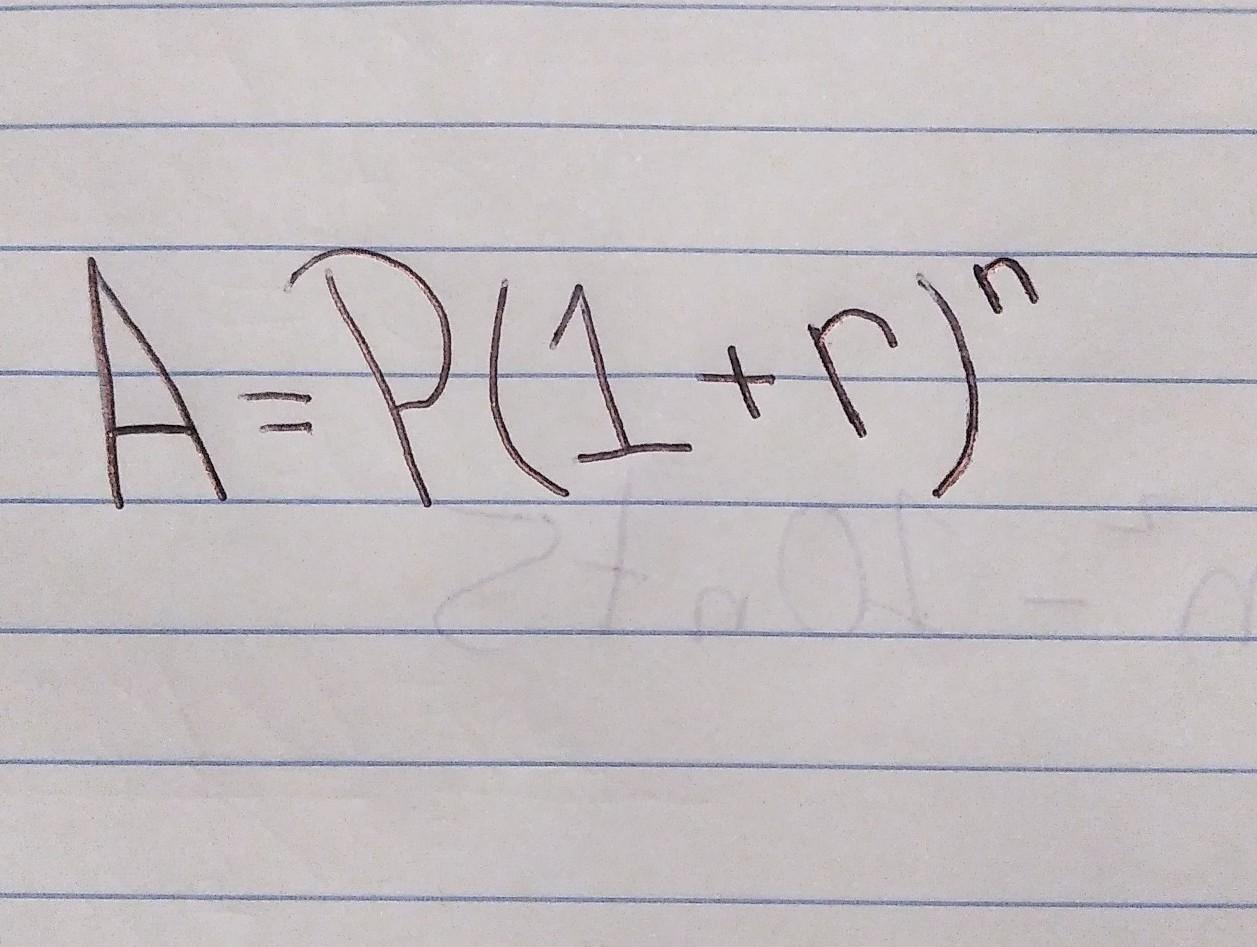 A=P(1+r)ⁿ